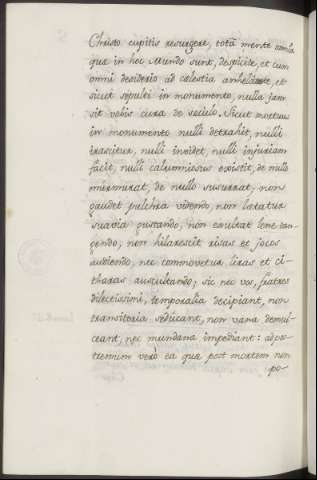 Christo cupitis resurgere, totâ mente omnia
quæ in hoc Mundo sunt, despicite, et cum
omni desiderio ad celestia anhelate, et
sicut sepulti in monumento, nulla jam
sit vobis cura de sæculo. Sicut mortuus
in monumento nulli detrahit, nulli
irascitur, nulli invidet, nulli injuriam
facit, nulli calumniosus existit, de nullo
murmurat, de nullo susurrat, non
gaudet pulchra videndo, non lætatur
suavia gustando, non exultat lene tan-
gendo, non hilarescit risus et jocos
audiendo, nec commovetur liras et ci-
tharas auscultando; sic nec vos, fratres
dilectissimi, temporalia decipiant, non
transitoria seducant, non vana demul-
ceant, nec mundana impediant: ad po-
tiennum verò ea quæ post mortem non
po-